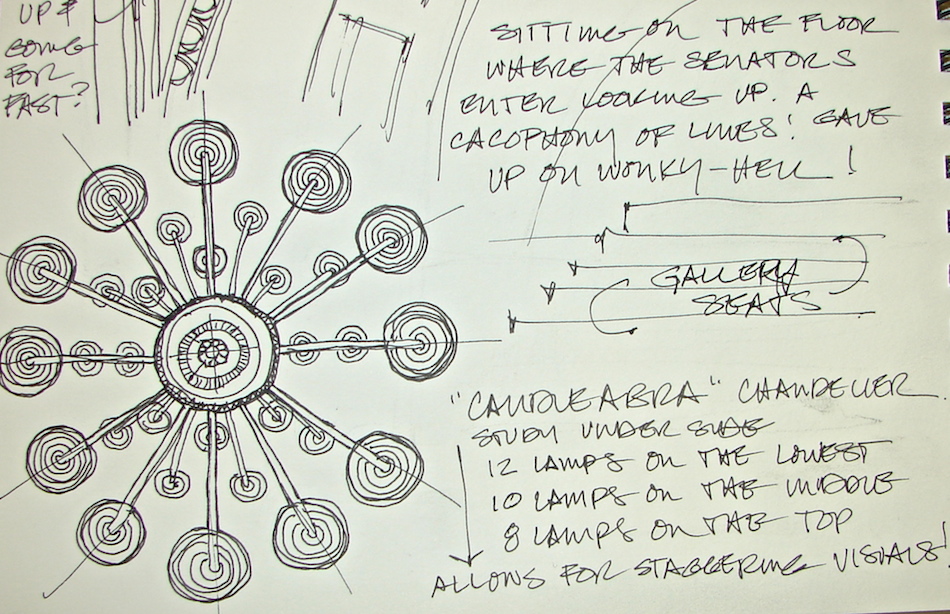 UP &
GOING
FOR
FAST?
SITTING ON THE FLOOR
WHERE THE SENATORS
ENTER LOOKING UP. A
CACOPHONY OF LINES! GAVE
UP ON WONKY-HELL!
GALLERY
SEATS
"CANDLEABRA" CHANDELIER
STUDY UNDER SIDE
12 LAMPS ON THE LOWEST
10 LAMPS ON THE MIDDLE
8 LAMPS ON THE TOP
ALLOWS FOR STAGGERING VISUALS!